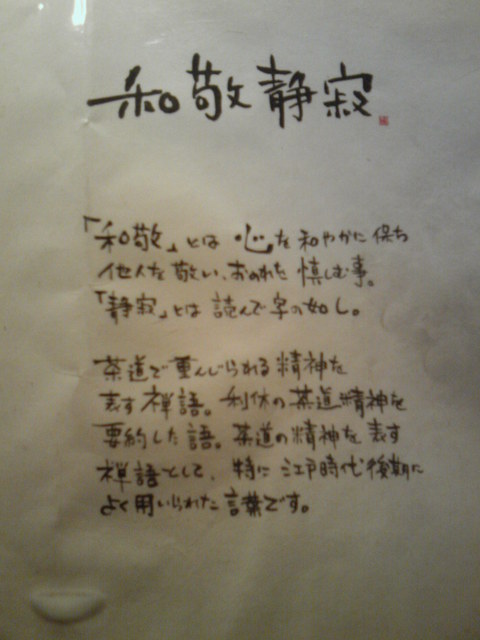 和敬静寂
「和敬」とは 心を和やかに保ち
他人を敬い、おのれを慎しむ事。
「静寂」とは読んで字の如し。
茶道で重んじられる精神を
表す禅語。利休の茶道精神を
要約した語。茶道の精神を表す
禅語として、特に江戸時代後期に
よく用いられた言葉です。